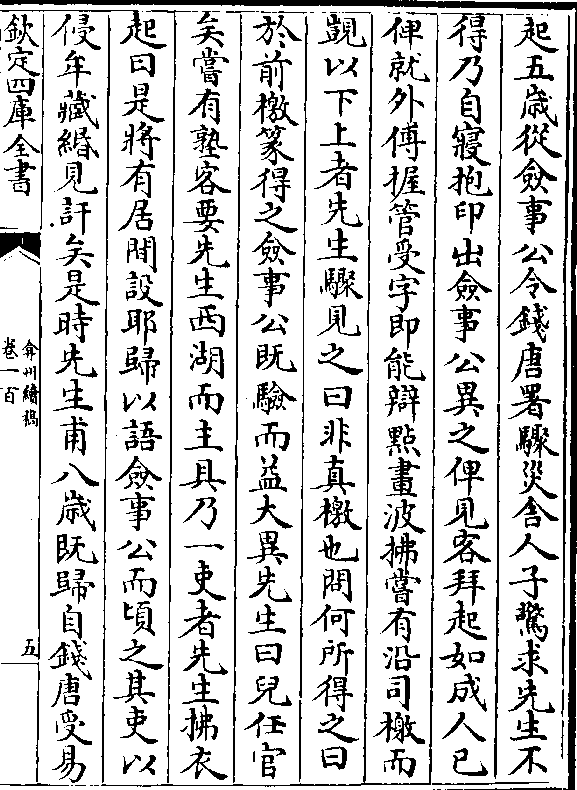 起五歳從僉事公令錢唐署驟災舎人子驚求先生不
得乃自寢抱印出僉事公異之俾見客拜起如成人已
俾就外傅握管受字即能辯點畫波拂嘗有沿司檄而
覬以下上者先生驟見之曰非真檄也問何所得之曰
於前檄篆得之僉事公既驗而益大異先生曰兒任官
矣嘗有塾客要先生西湖而主具乃一吏者先生拂衣
起曰是將有居間設耶歸以語僉事公而頃之其吏以
侵牟藏緡見訐矣是時先生甫八歳既歸自錢唐受易
欽定四庫全書
弇州續稿
卷一百
五